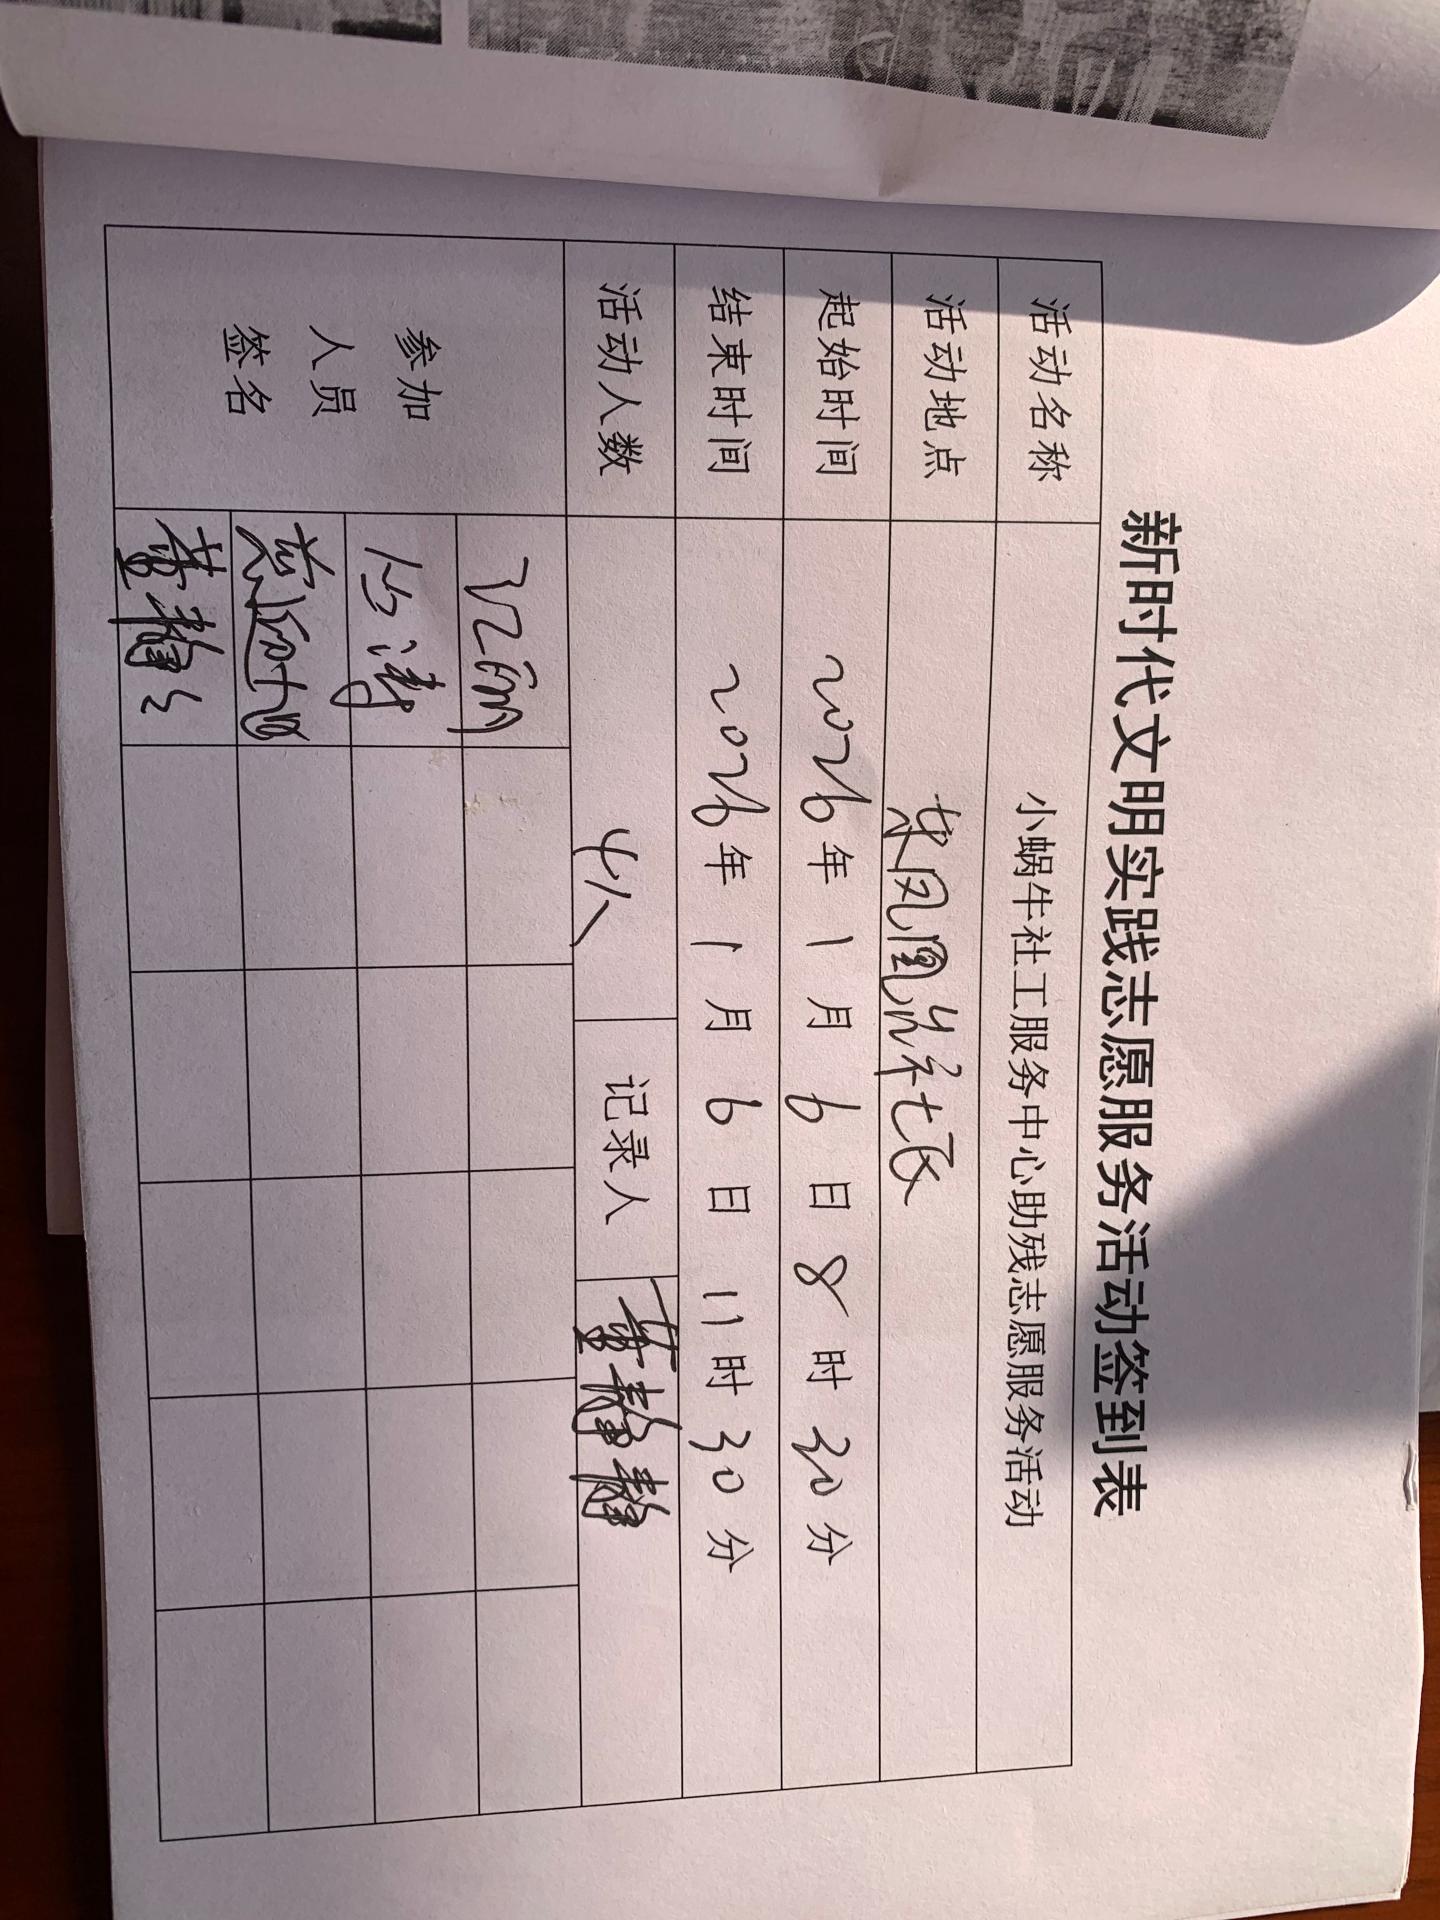 新时代文明实践志愿服务活动签到表
活动名称 小蜗牛社工服务中心助残志愿服务活动
活动地点 凤凰 社区
起始时间 2026年1月6日8时30分
结束时间 2026年1月6日11时30分
活动人数 4人 记录人 董静静
参加
人员
签名
涛
董静